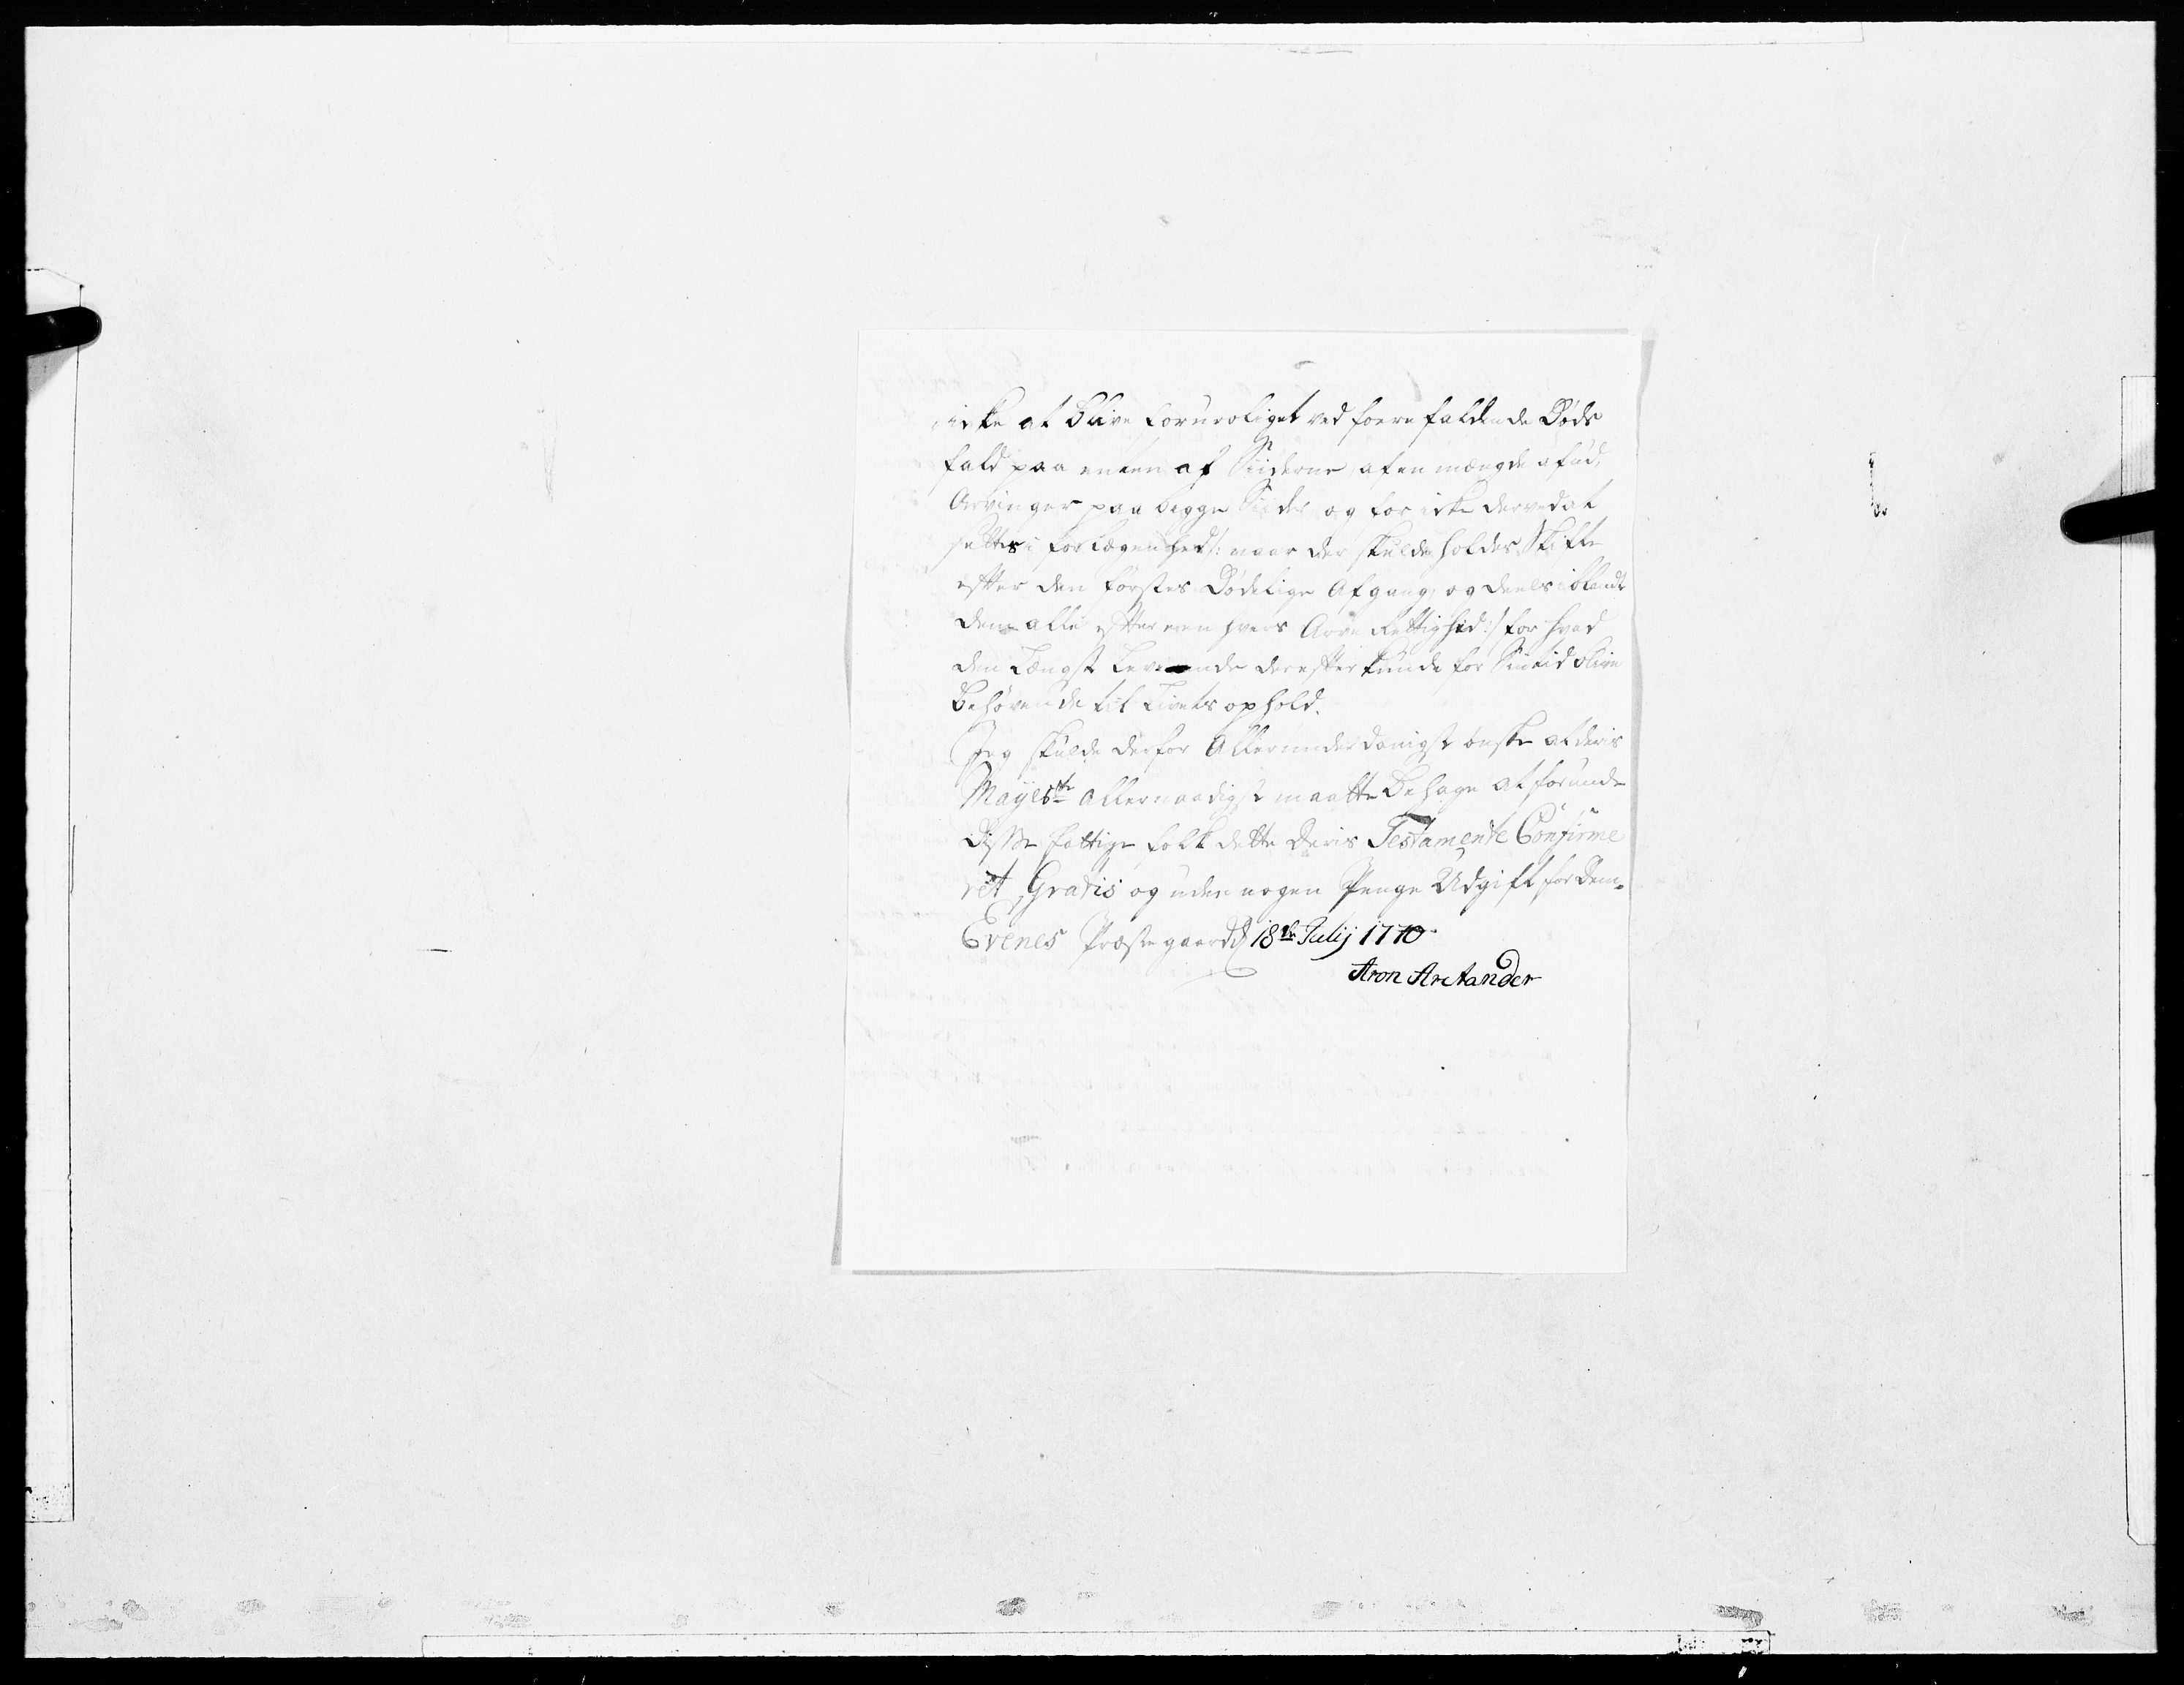 icke at blive foruroliget ved forrefaldende Døds
fald paa enten af Siiderne, af en mængde af ud,
Arvinger paa begge Siider og for icke derved at
sættes i forlægenhed /: naar der skulde holdes Skifte
efter den førstes Dødelige Afgang, og deeles iblandt
dem alle efter een hvers Arve Rettighed :/ for hvad
den Længst Levende derefter kunde for Sin tid blive
behøvende til Livets ophold.
Jeg skulde derfor Allerunderdanigst ønske at deris
Mayestte allernaadigst maatte behage at forunde
disse fattige folk dette deris Testamente Confirme
ret Gratis og uden nogen Penge Udgift for dem.
Evenes Præstegaard d 18de Julij 1770
Aron Arctander